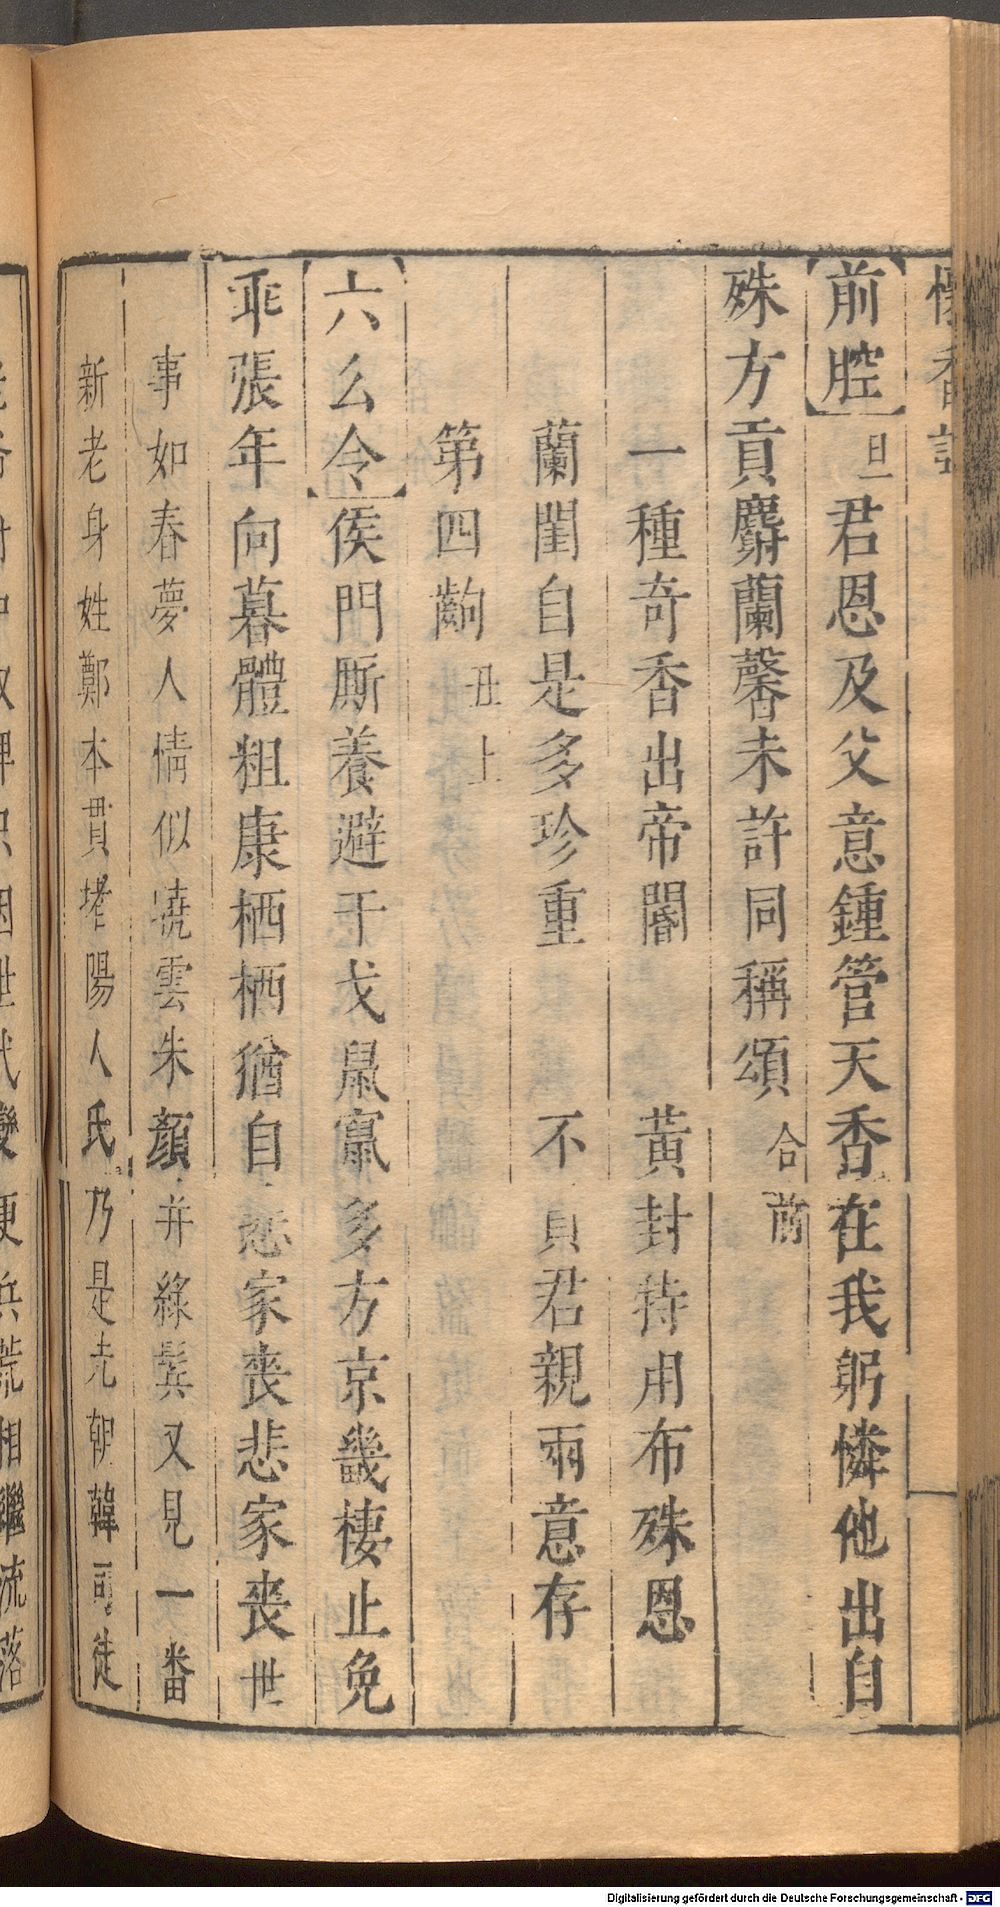 懷香記
【前腔】旦君恩及父意鍾管天香在我躬憐他出自
殊方貢麝蘭馨未許同稱頌合前
一種奇香出帝閽　黃封特用布殊恩
蘭閨自是多珍重　不負君親兩意存
第四齣丑上
【六么令】侯門厮養避干戈鼠竄多方京畿棲止免
乖張年向暮體粗康栖栖猶自悲家喪悲家喪世
事如春夢人情似曉雲朱顏并綠鬂又見一番
新老身姓鄭本貫堵陽人氏乃是先朝韓司徒
變更兵荒相繼流落
Digitalisierung gefördert durch die Deutsche Forschungsgemeinschaft - DFG